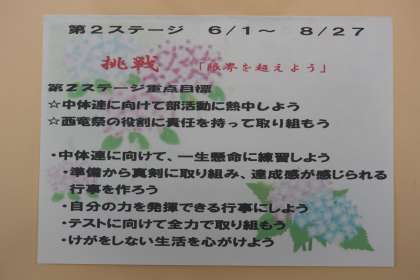 第２ステージ　６/１～　８/２７
挑戦　「限界を超えよう」
第２ステージ重点目標
☆中体連に向けて部活動に熱中しよう
☆西竜祭の役割に責任を持って取り組もう
・中体連に向けて、一生懸命に練習しよう
・準備から真剣に取り組み、達成感が感じられる
行事を作ろう
・自分の力を発揮できる行事にしよう
・テストに向けて全力で取り組もう
・けがをしない生活を心がけよう